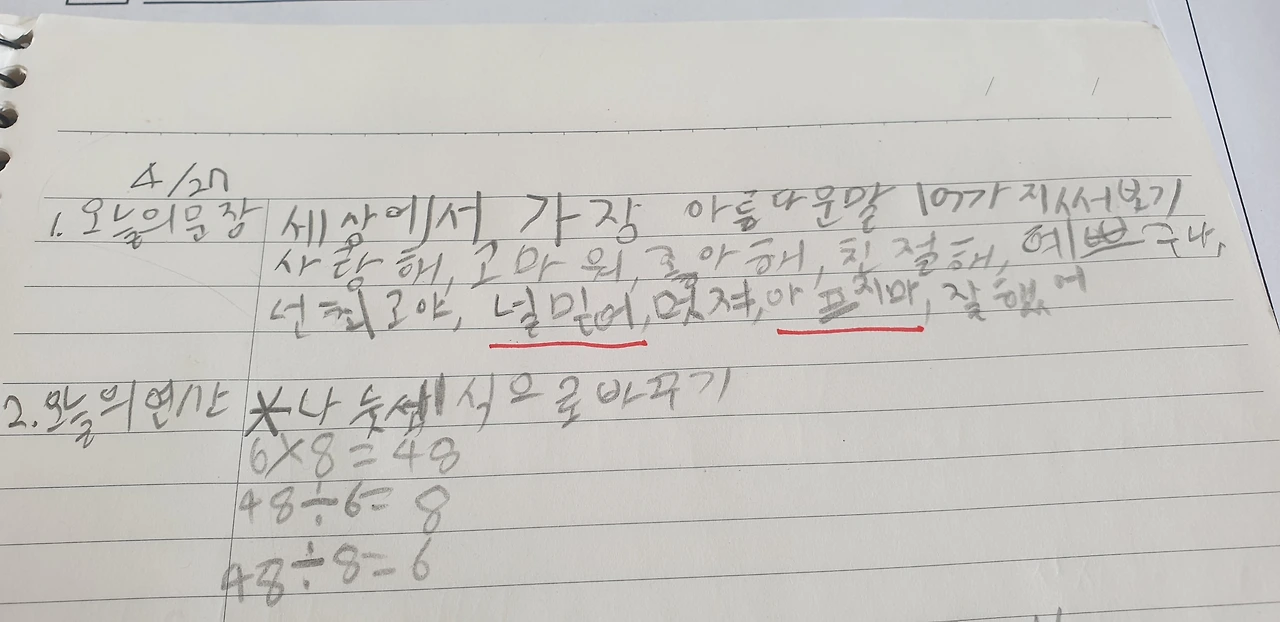 4/27
1. 오늘의문장 세상에서 가장 아름다운말 10가지써보기
사랑해, 고마워, 좋아해, 친절해, 예쁘구나,
널믿어, 멋져, 아프지마, 잘했어
2. 오늘의연산 *나눗셈식으로바꾸기
6×8=48
48÷6=8
48÷8=6